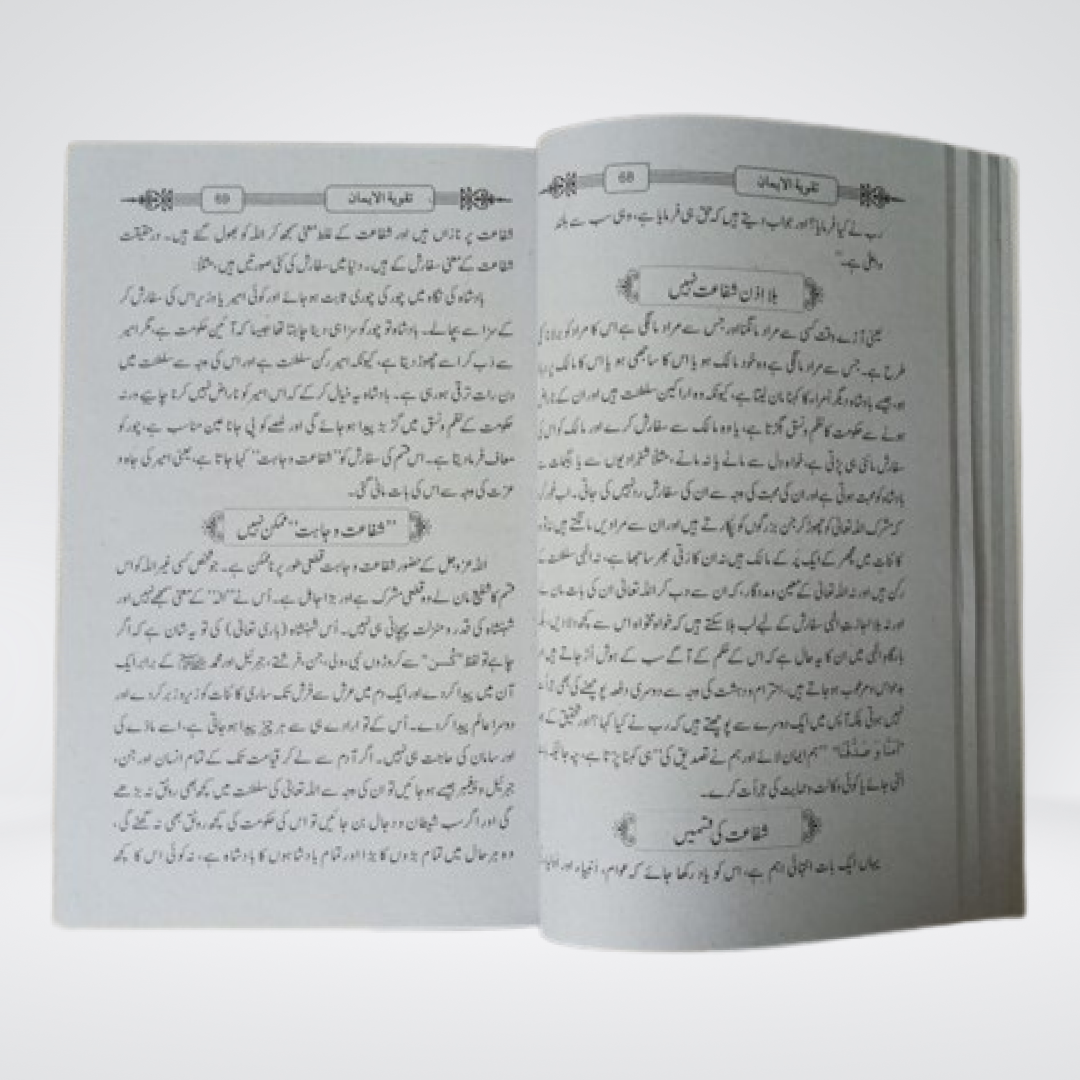 68
تقویۃ الایمان
رب نے کیا فرمایا؟ اور جواب دیتے ہیں کہ حق ہی فرمایا ہے، وہی سب سے بلند
واعلی ہے۔"
بلا اذن شفاعت نہیں
یعنی آڑے وقت کسی سے مراد مانگنا اور جس سے مراد مانگی ہے اس کا مراد کو بر لانا
طرح ہے۔ جس سے مراد مانگی ہے وہ خود مالک ہو یا اس کا ساجھی ہو یا اس کا مالک پر
ہو، جیسے بادشاہ دیگر اُمراء کا کہنا مان لیتا ہے، کیونکہ وہ اراکین سلطنت ہیں اور ان کے
ہونے سے حکومت کا نظم ونسق بگڑتا ہے، یا وہ مالک سے سفارش کرے اور مالک کو اس
سفارش ماننی ہی پڑتی ہے، خواہ دل سے مانے یا نہ مانے، مثلاً شہزادیوں سے یا بیگمات
بادشاہ کو محبت ہوتی ہے اور ان کی محبت کی وجہ سے ان کی سفارش رد نہیں کی جاتی۔ اب غور
کہ مشرک اللہ تعالی کو چھوڑ کر جن بزرگوں کو پکارتے ہیں اور ان سے مرادیں مانگتے ہیں
کائنات میں مچھر کے ایک پَر کے مالک ہیں نہ ان کا رَتی بھر ساجھا ہے، نہ الٰہی سلطنت
رکن ہیں اور نہ اللہ تعالی کے معین ومددگار، کہ ان سے دب کر اللہ تعالی ان کی بات مان
اور نہ بلا اجازت الٰہی سفارش کے لیے لب ہلا سکتے ہیں کہ خواہ مخواہ اس سے کچھ دلا دیں،
بارگاہ الٰہی میں ان کا یہ حال ہے کہ اس کے حکم کے آگے سب کے ہوش اُڑ جاتے ہیں
بدحواس ومرعوب ہو جاتے ہیں، احترام ودہشت کی وجہ سے دوسری دفعہ پوچھنے کی بھی
نہیں ہوتی بلکہ آپس میں ایک دوسرے سے پوچھتے ہیں کہ رب نے کیا کہا؟ اور تحقیق کے
"اٰمَنَّا وَ صَدَّقْنَا" "ہم ایمان لائے اور ہم نے تصدیق کی" ہی کہنا پڑتا ہے، چہ جائیکہ
الٹی جائے یا کوئی وکالت وحمایت کی جرأت کرے۔
شفاعت کی قسمیں
یہاں ایک بات انتہائی اہم ہے، اس کو یاد رکھا جائے کہ عوام، انبیاء اور
69
تقویۃ الایمان
شفاعت پر نازاں ہیں اور شفاعت کے غلط معنی سمجھ کر اللہ کو بھول گئے ہیں۔ درحقیقت
شفاعت کے معنی سفارش کے ہیں۔ دنیا میں سفارش کی کئی صورتیں ہیں، مثلاً:
بادشاہ کی نگاہ میں چور کی چوری ثابت ہو جائے اور کوئی امیر یا وزیر اس کی سفارش کر
کے سزا سے بچالے۔ بادشاہ تو چور کو سزا ہی دینا چاہتا تھا جیسا کہ آئین حکومت ہے، مگر امیر
سے دَب کر اسے چھوڑ دیتا ہے، کیونکہ امیر رکن سلطنت ہے اور اس کی وجہ سے سلطنت میں
دن رات ترقی ہو رہی ہے۔ بادشاہ یہ خیال کرکے کہ اس امیر کو ناراض نہیں کرنا چاہیے ورنہ
حکومت کے نظم ونسق میں گڑبڑ پیدا ہو جائے گی اور غصے کو پی جانا عین مناسب ہے، چور کو
معاف فرما دیتا ہے۔ اس قسم کی سفارش کو "شفاعت وجاہت" کہا جاتا ہے، یعنی امیر کی جاہ و
عزت کی وجہ سے اس کی بات مانی گئی۔
"شفاعت وجاہت" ممکن نہیں
اللہ عزوجل کے حضور شفاعت وجاہت قطعی طور پر ناممکن ہے۔ جو شخص کسی غیر اللہ کو اس
قسم کا شفیع مان لے وہ قطعی مشرک ہے اور بڑا جاہل ہے۔ اُس نے "الٰہ" کے معنی سمجھے نہیں اور
شہنشاہ کی قدر و منزلت پہچانی ہی نہیں۔ اُس شہنشاہ (باری تعالی) کی تو یہ شان ہے کہ اگر
چاہے تو لفظ "کُــنْ" سے کروڑوں نبی، ولی، جن، فرشتے، جبرئیل اور محمد ﷺ کے برابر ایک
آن میں پیدا کردے اور ایک دم میں عرش سے فرش تک ساری کائنات کو زیروزبر کردے اور
دوسرا عالم پیدا کردے۔ اُس کے تو ارادے ہی سے ہر چیز پیدا ہو جاتی ہے، اسے مادّے کی
اور سامان کی حاجت ہی نہیں۔ اگر آدم سے لے کر قیامت تک کے تمام انسان اور جن،
جبرئیل و پیغمبر جیسے ہو جائیں تو ان کی وجہ سے اللہ تعالی کی سلطنت میں کچھ بھی رونق نہ بڑھے
گی اور اگر سب شیطان و دجال بن جائیں تو اس کی حکومت کی کچھ رونق بھی نہ گھٹے گی،
وہ ہر حال میں تمام بڑوں کا بڑا اور تمام بادشاہوں کا بادشاہ ہے، نہ کوئی اس کا کچھ